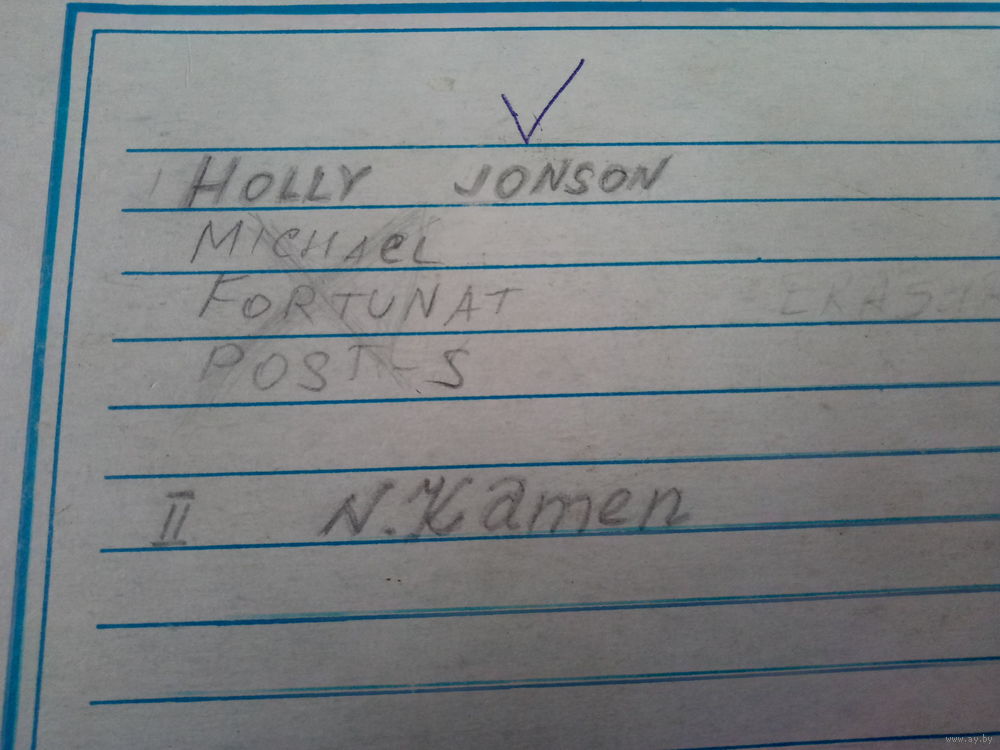 HOLLY JONSON
MICHAEL
FORTUNAT
POST-S
II N. Kamen
www.ay.by